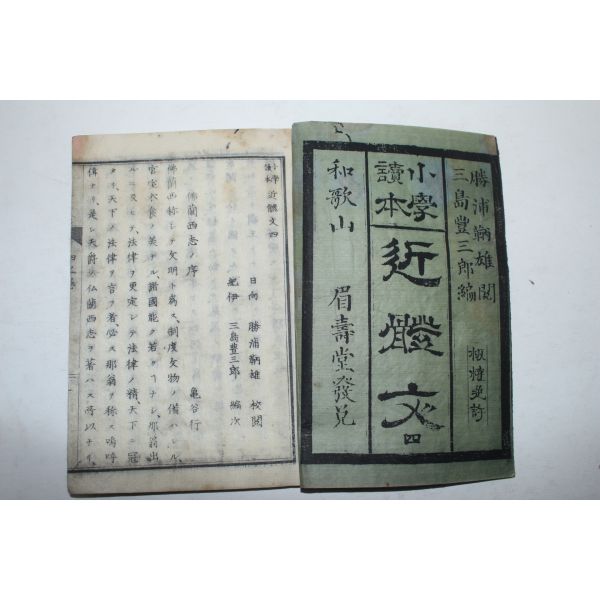 勝浦鞆雄閲
三島豊三郎編
版権免許
小學
讀本
近體文
四
和歌山 眉壽堂發兌
小學
讀本 近體文四
日向 勝浦鞆雄 校閲
紀伊 三島豊三郎 編次
佛蘭西志ノ序
亀谷行
佛蘭西称シテ文明ト為ス、制度文物ノ備ハレル、
宮室衣食ノ美ナル、諸國能ク若クナシ、那翁出
ルニ及ヒテ、法律ヲ更定シテ法律ノ精天下ニ冠
タリ、天下ノ法律ヲ言フ者、必ス那翁ヲ称ス、嗚呼
偉ナリ、是レ天爵ノ仏蘭西志ヲ著ハス所以ナリ、